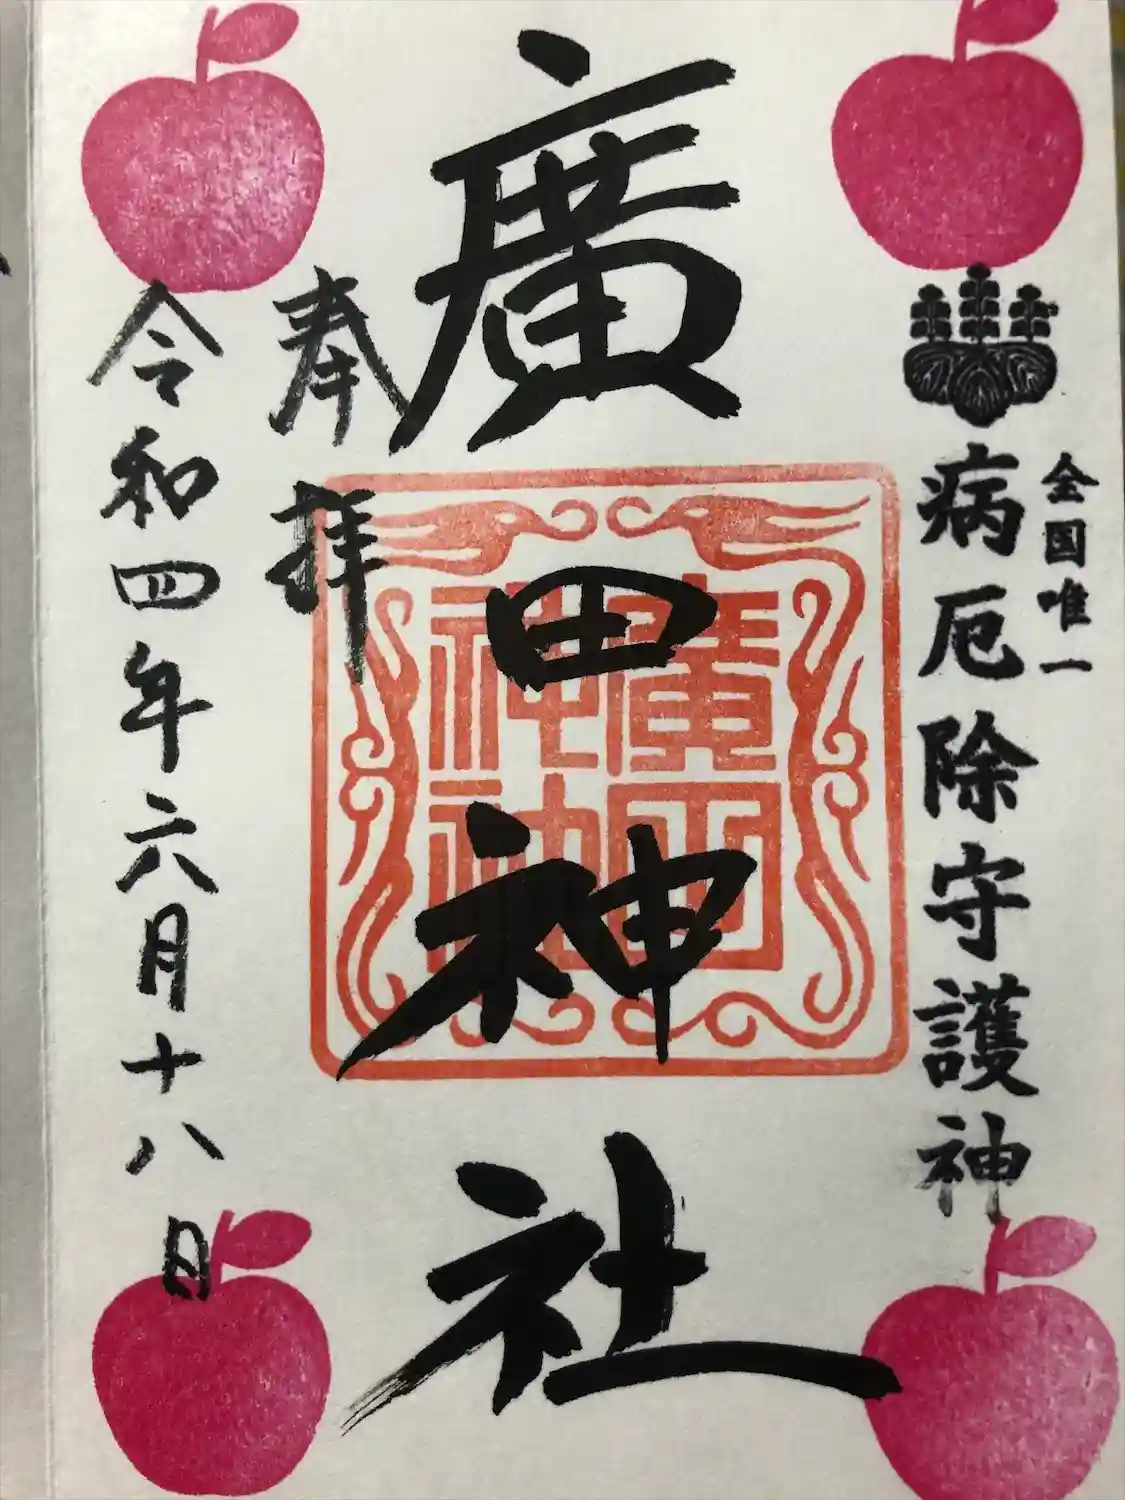 全国唯一
病厄除守護神
廣田神社
廣田
神社
奉拝
令和四年六月十八日